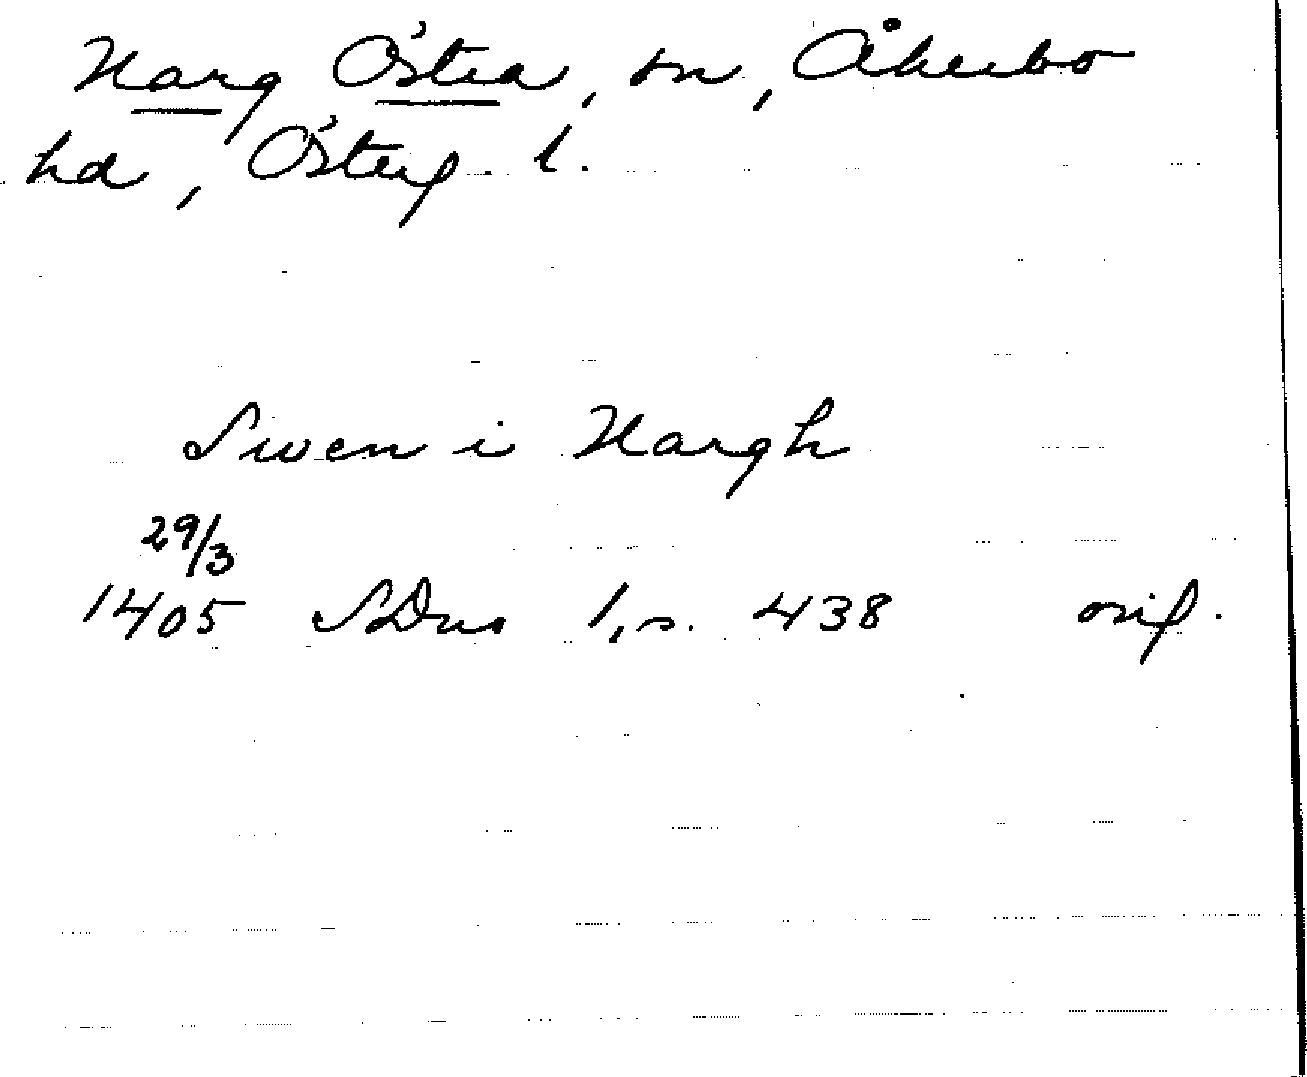 Harg Östra, sn, Åkerbo
hd, Österg. l.
Swen i Hargh
29/3
1405 SDns 1, s. 438 orig.